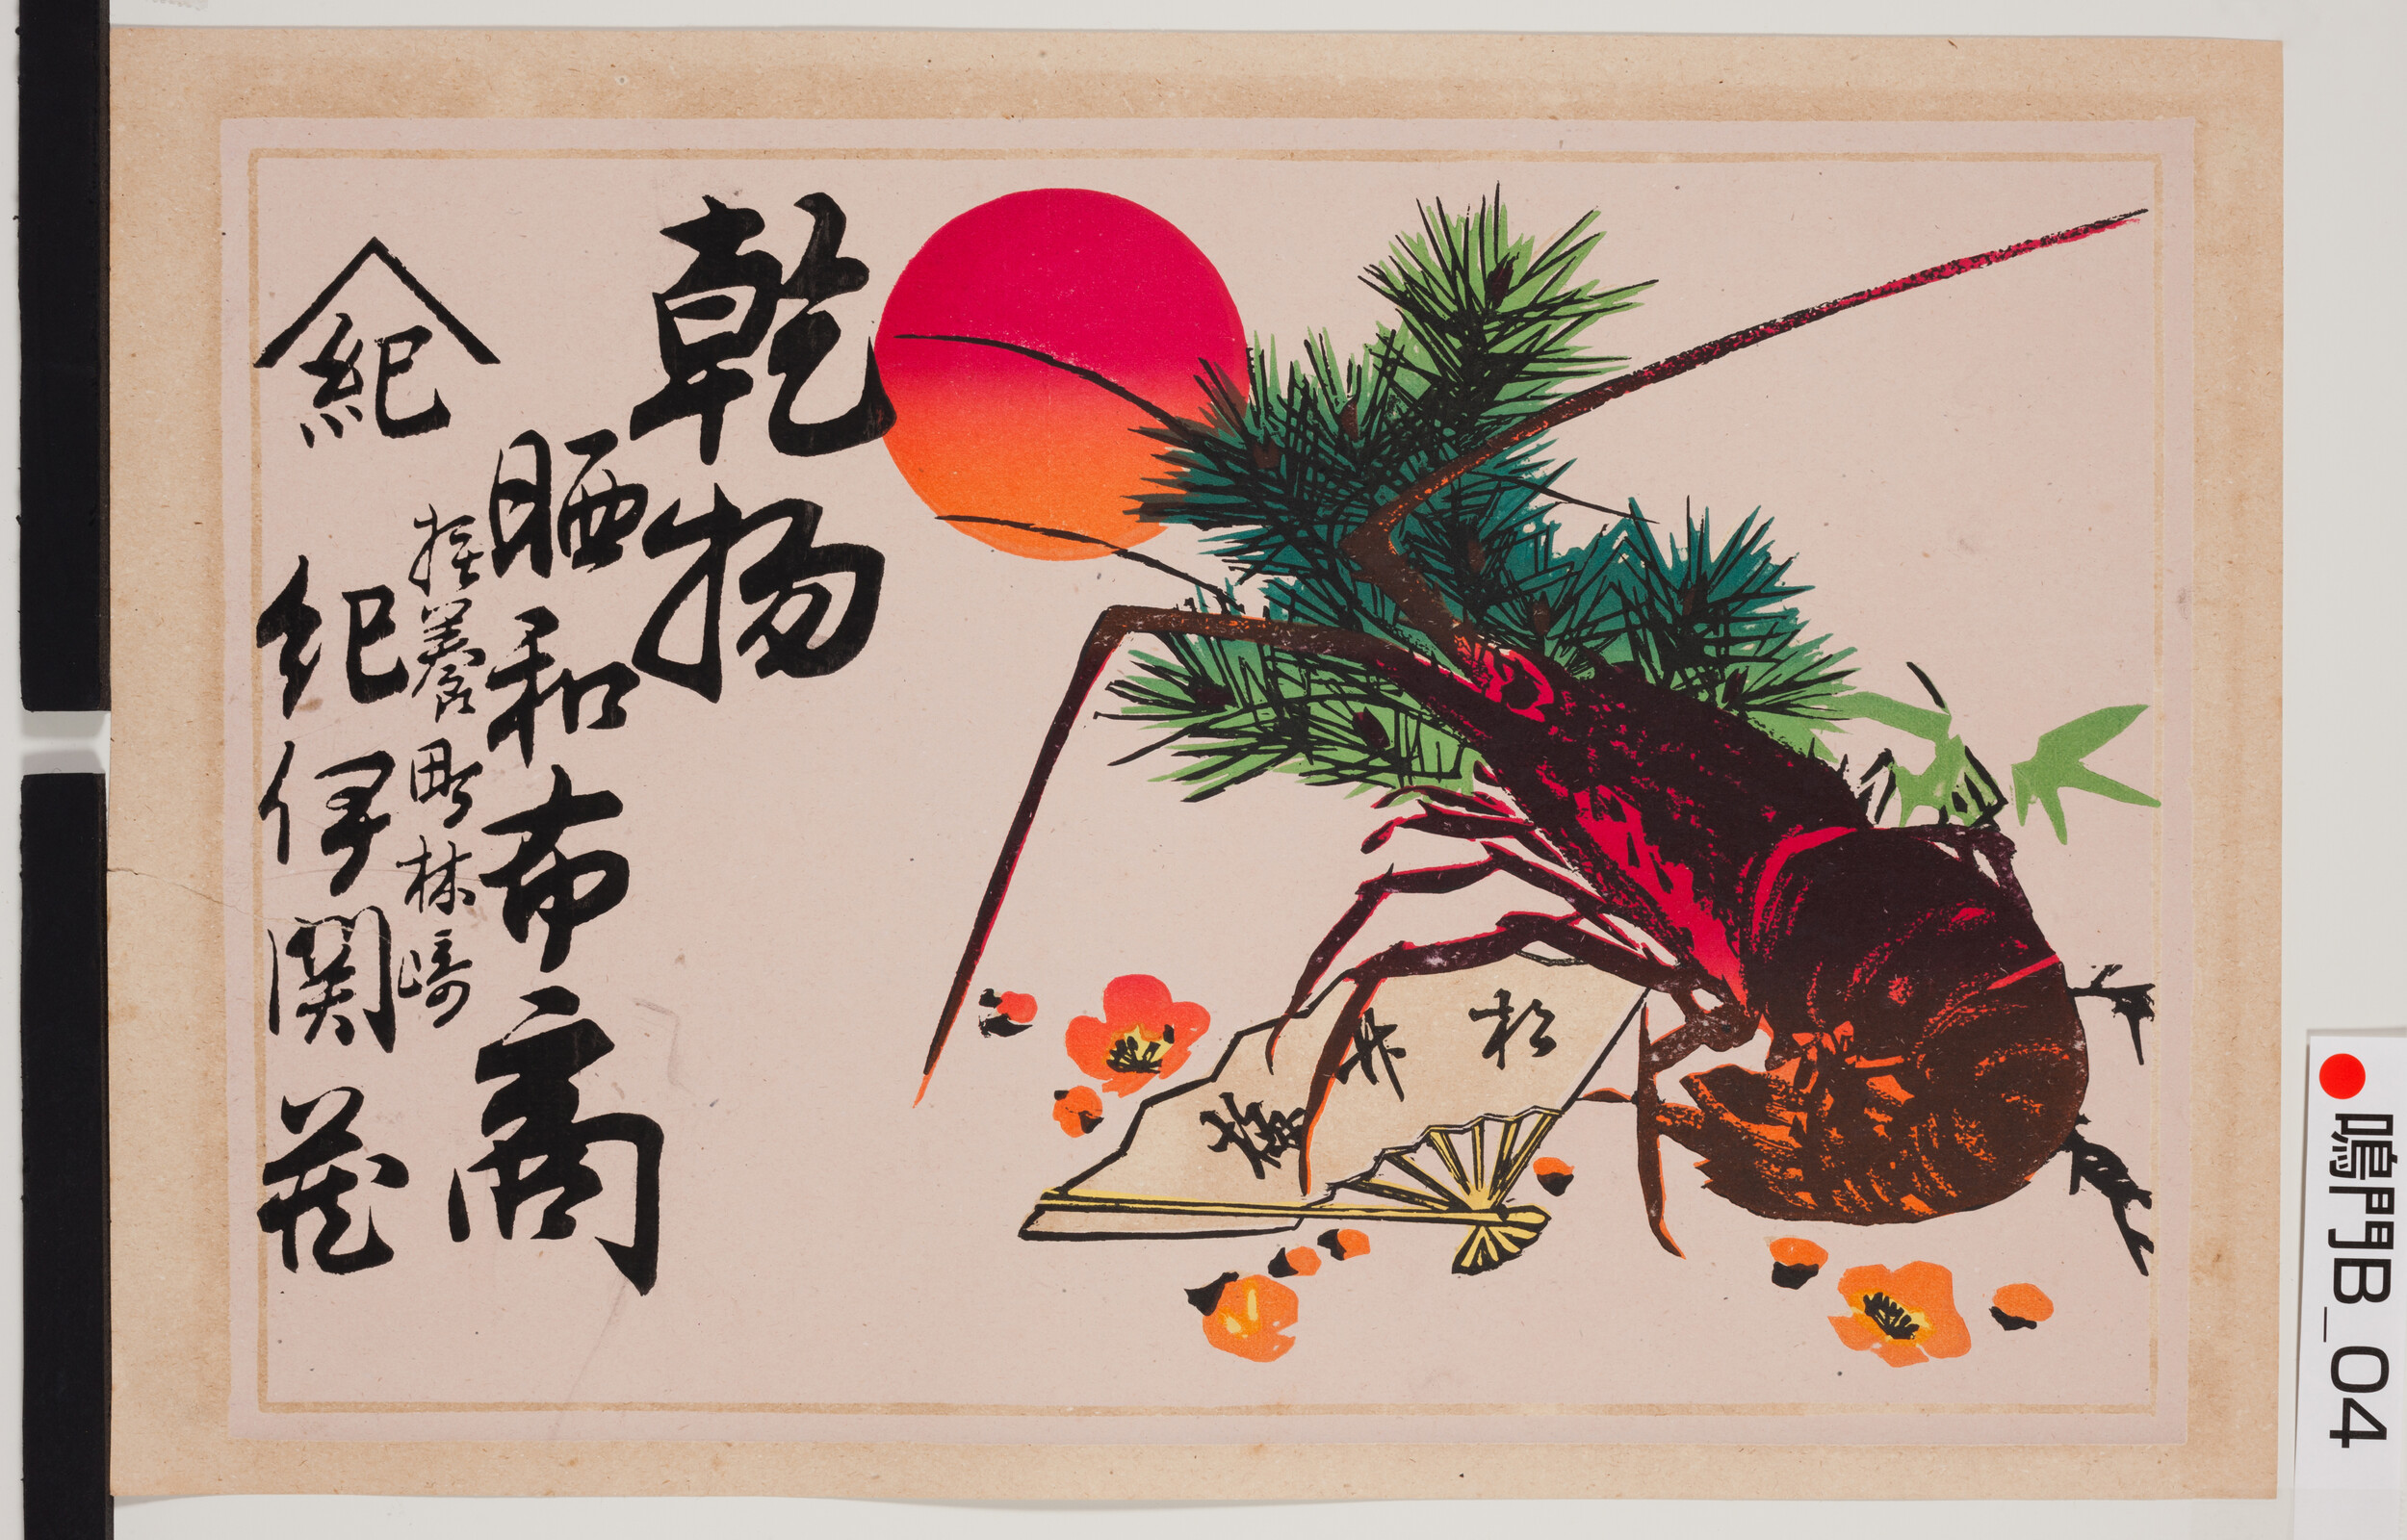 松
竹
梅
乾物
晒和布商
撫養町林崎
紀
紀伊関茂
鳴門B_04